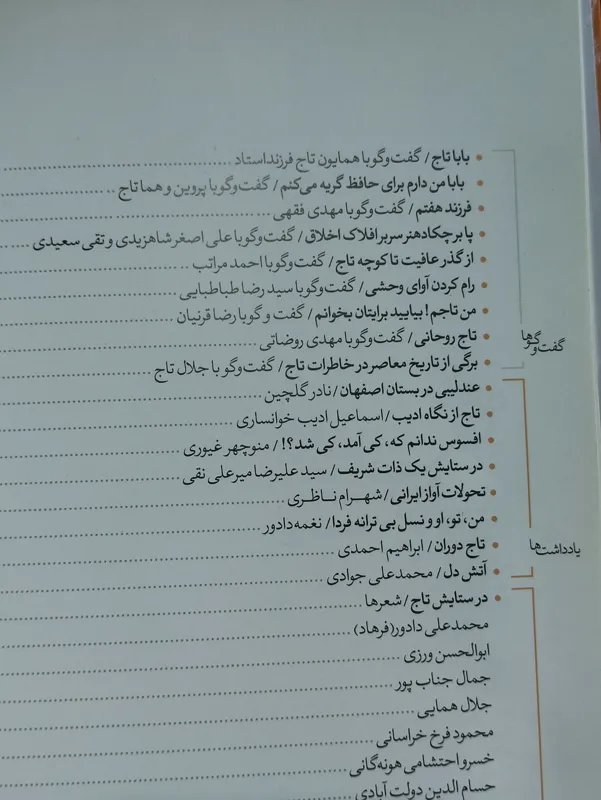 بابا تاج / گفت‌وگو با همایون تاج فرزند استاد
بابا من دارم برای حافظ گریه می‌کنم / گفت‌وگو با پروین و هما تاج
فرزند هفتم / گفت‌وگو با مهدی فقهی
پا بر چکاد هنر سر بر افلاک اخلاق / گفت‌وگو با علی اصغر شاهزیدی و تقی سعیدی
از گذر عافیت تا کوچه تاج / گفت‌وگو با احمد مراتب
رام کردن آوای وحشی / گفت‌وگو با سید رضا طباطبایی
من تاجم! بیایید برایتان بخوانم / گفت و گو با رضا قرنیان
تاج روحانی / گفت‌وگو با مهدی روضاتی
برگی از تاریخ معاصر در خاطرات تاج / گفت‌وگو با جلال تاج
گفت‌وگوها
عندلیبی در بستان اصفهان / نادر گلچین
تاج از نگاه ادیب / اسماعیل ادیب خوانساری
افسوس ندانم که، کی آمد، کی شد؟! / منوچهر غیوری
در ستایش یک ذات شریف / سید علیرضا میرعلی نقی
تحولات آواز ایرانی / شهرام ناظری
من، تو، او و نسل بی ترانه فردا / نغمه دادور
تاج دوران / ابراهیم احمدی
آتش دل / محمدعلی جوادی
یادداشت‌ها
در ستایش تاج / شعرها
محمدعلی دادور(فرهاد)
ابوالحسن ورزی
جمال جناب پور
جلال همایی
محمود فرخ خراسانی
خسرو احتشامی هونه‌گانی
حسام الدین دولت آبادی